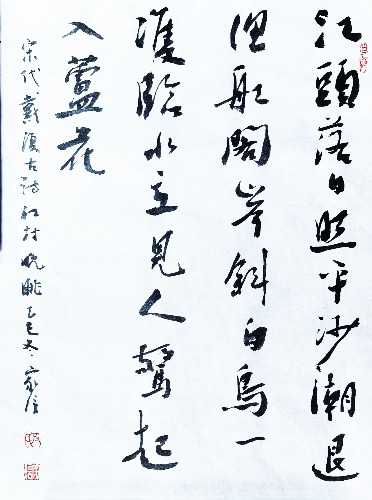 江頭落日照平沙潮退
漁船閣岸斜白鳥一
雙臨水立見人驚起
入蘆花
宋代戴復古詩江村晚眺乙巳冬家